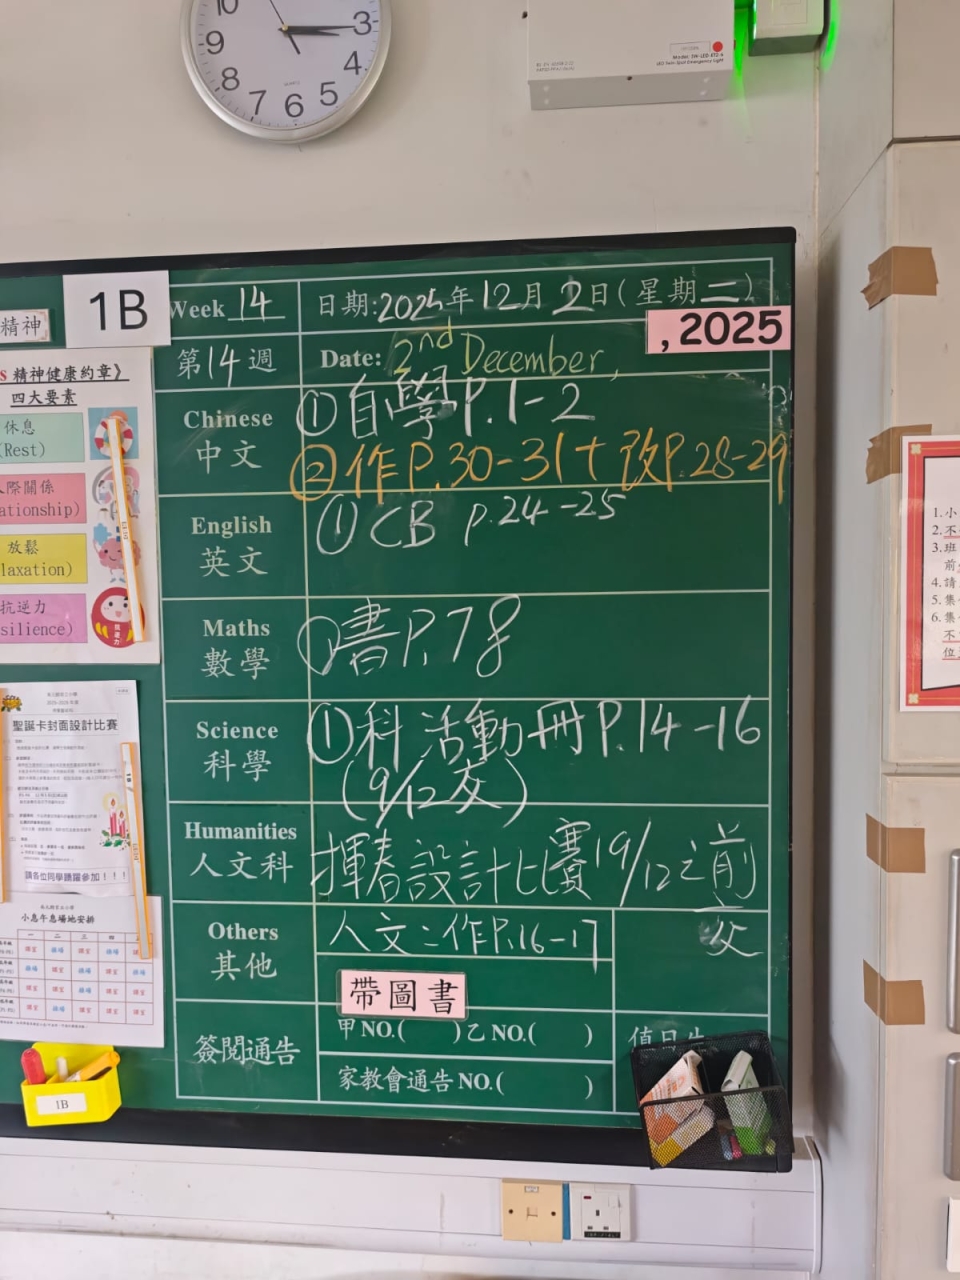 10
9
8
7
6
5
4
3
QUARTZ
LED Twin Spot Emergency Light
1B
精神
Week 14
日期:2025年12月2日(星期二)
第14週
Date: 2nd December,
, 2025
Chinese
中文
①自學P.1-2
②作P.30-31+改P.28-29
English
英文
①CB p.24-25
Maths
數學
①書P.78
Science
科學
①科活動冊P.14-16
(9/12交)
Humanities
人文科
揮春設計比賽19/12之前
交
Others
其他
人文:作P.16-17
帶圖書
簽閱通告
甲NO.( )乙NO.( )
家教會通告NO.( )
值日生
精神健康約章》
四大要素
休息
(Rest)
人際關係
ationship)
放鬆
laxation)
抗逆力
silience)
聖誕卡封面設計比賽
請各位同學踴躍參加!!!
小息午息場地安排
一 二 三 四
1B
1.小
2.不
3.班
前
4.請
5.集
6.集
不
位